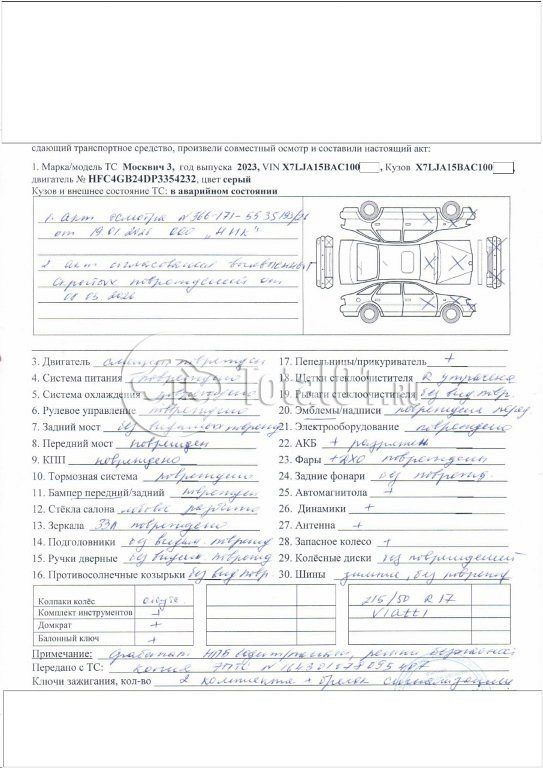 сдающий транспортное средство, произвели совместный осмотр и составили настоящий акт:
1. Марка/модель ТС Москвич 3, год выпуска 2023, VIN X7LJA15BAC100, Кузов X7LJA15BAC100,
двигатель № HFC4GB24DP3354232, цвет серый
Кузов и внешнее состояние ТС: в аварийном состоянии
1. Акт осмотра
от 19.01.2026 ООО „НИК"
2 Акт согласования
скрытых повреждений от
3. Двигатель
4. Система питания повреждено
5. Система охлаждения
6. Рулевое управление повреждено
7. Задний мост без видимых поврежд
8. Передний мост поврежден
9. КПП повреждено
10. Тормозная система повреждено
11. Бампер передний/задний поврежден
12. Стёкла салона лобовое разбито
13. Зеркала повреждено
14. Подголовники без видим. поврежд
15. Ручки дверные без видим. поврежд
16. Противосолнечные козырьки без вид повр
17. Пепельницы/прикуриватель +
18. Щетки стеклоочистителя R утрачена
19. Рычаги стеклоочистителя без вид повр.
20. Эмблемы/надписи повреждена перед
21. Электрооборудование повреждено
22. АКБ + разряжен
23. Фары +ДХО повреждены
24. Задние фонари без поврежд.
25. Автомагнитола +
26. Динамики +
27. Антенна +
28. Запасное колесо +
29. Колёсные диски без повреждений
30. Шины зимние, без поврежд
Колпаки колёс
Комплект инструментов +
Домкрат +
Балонный ключ +
215/50 R17
Viatti
Примечание:
Передано с ТС: копия ЭПТС N
Ключи зажигания, кол-во 2 комплекта + брелок сигнализации
Total01.ru